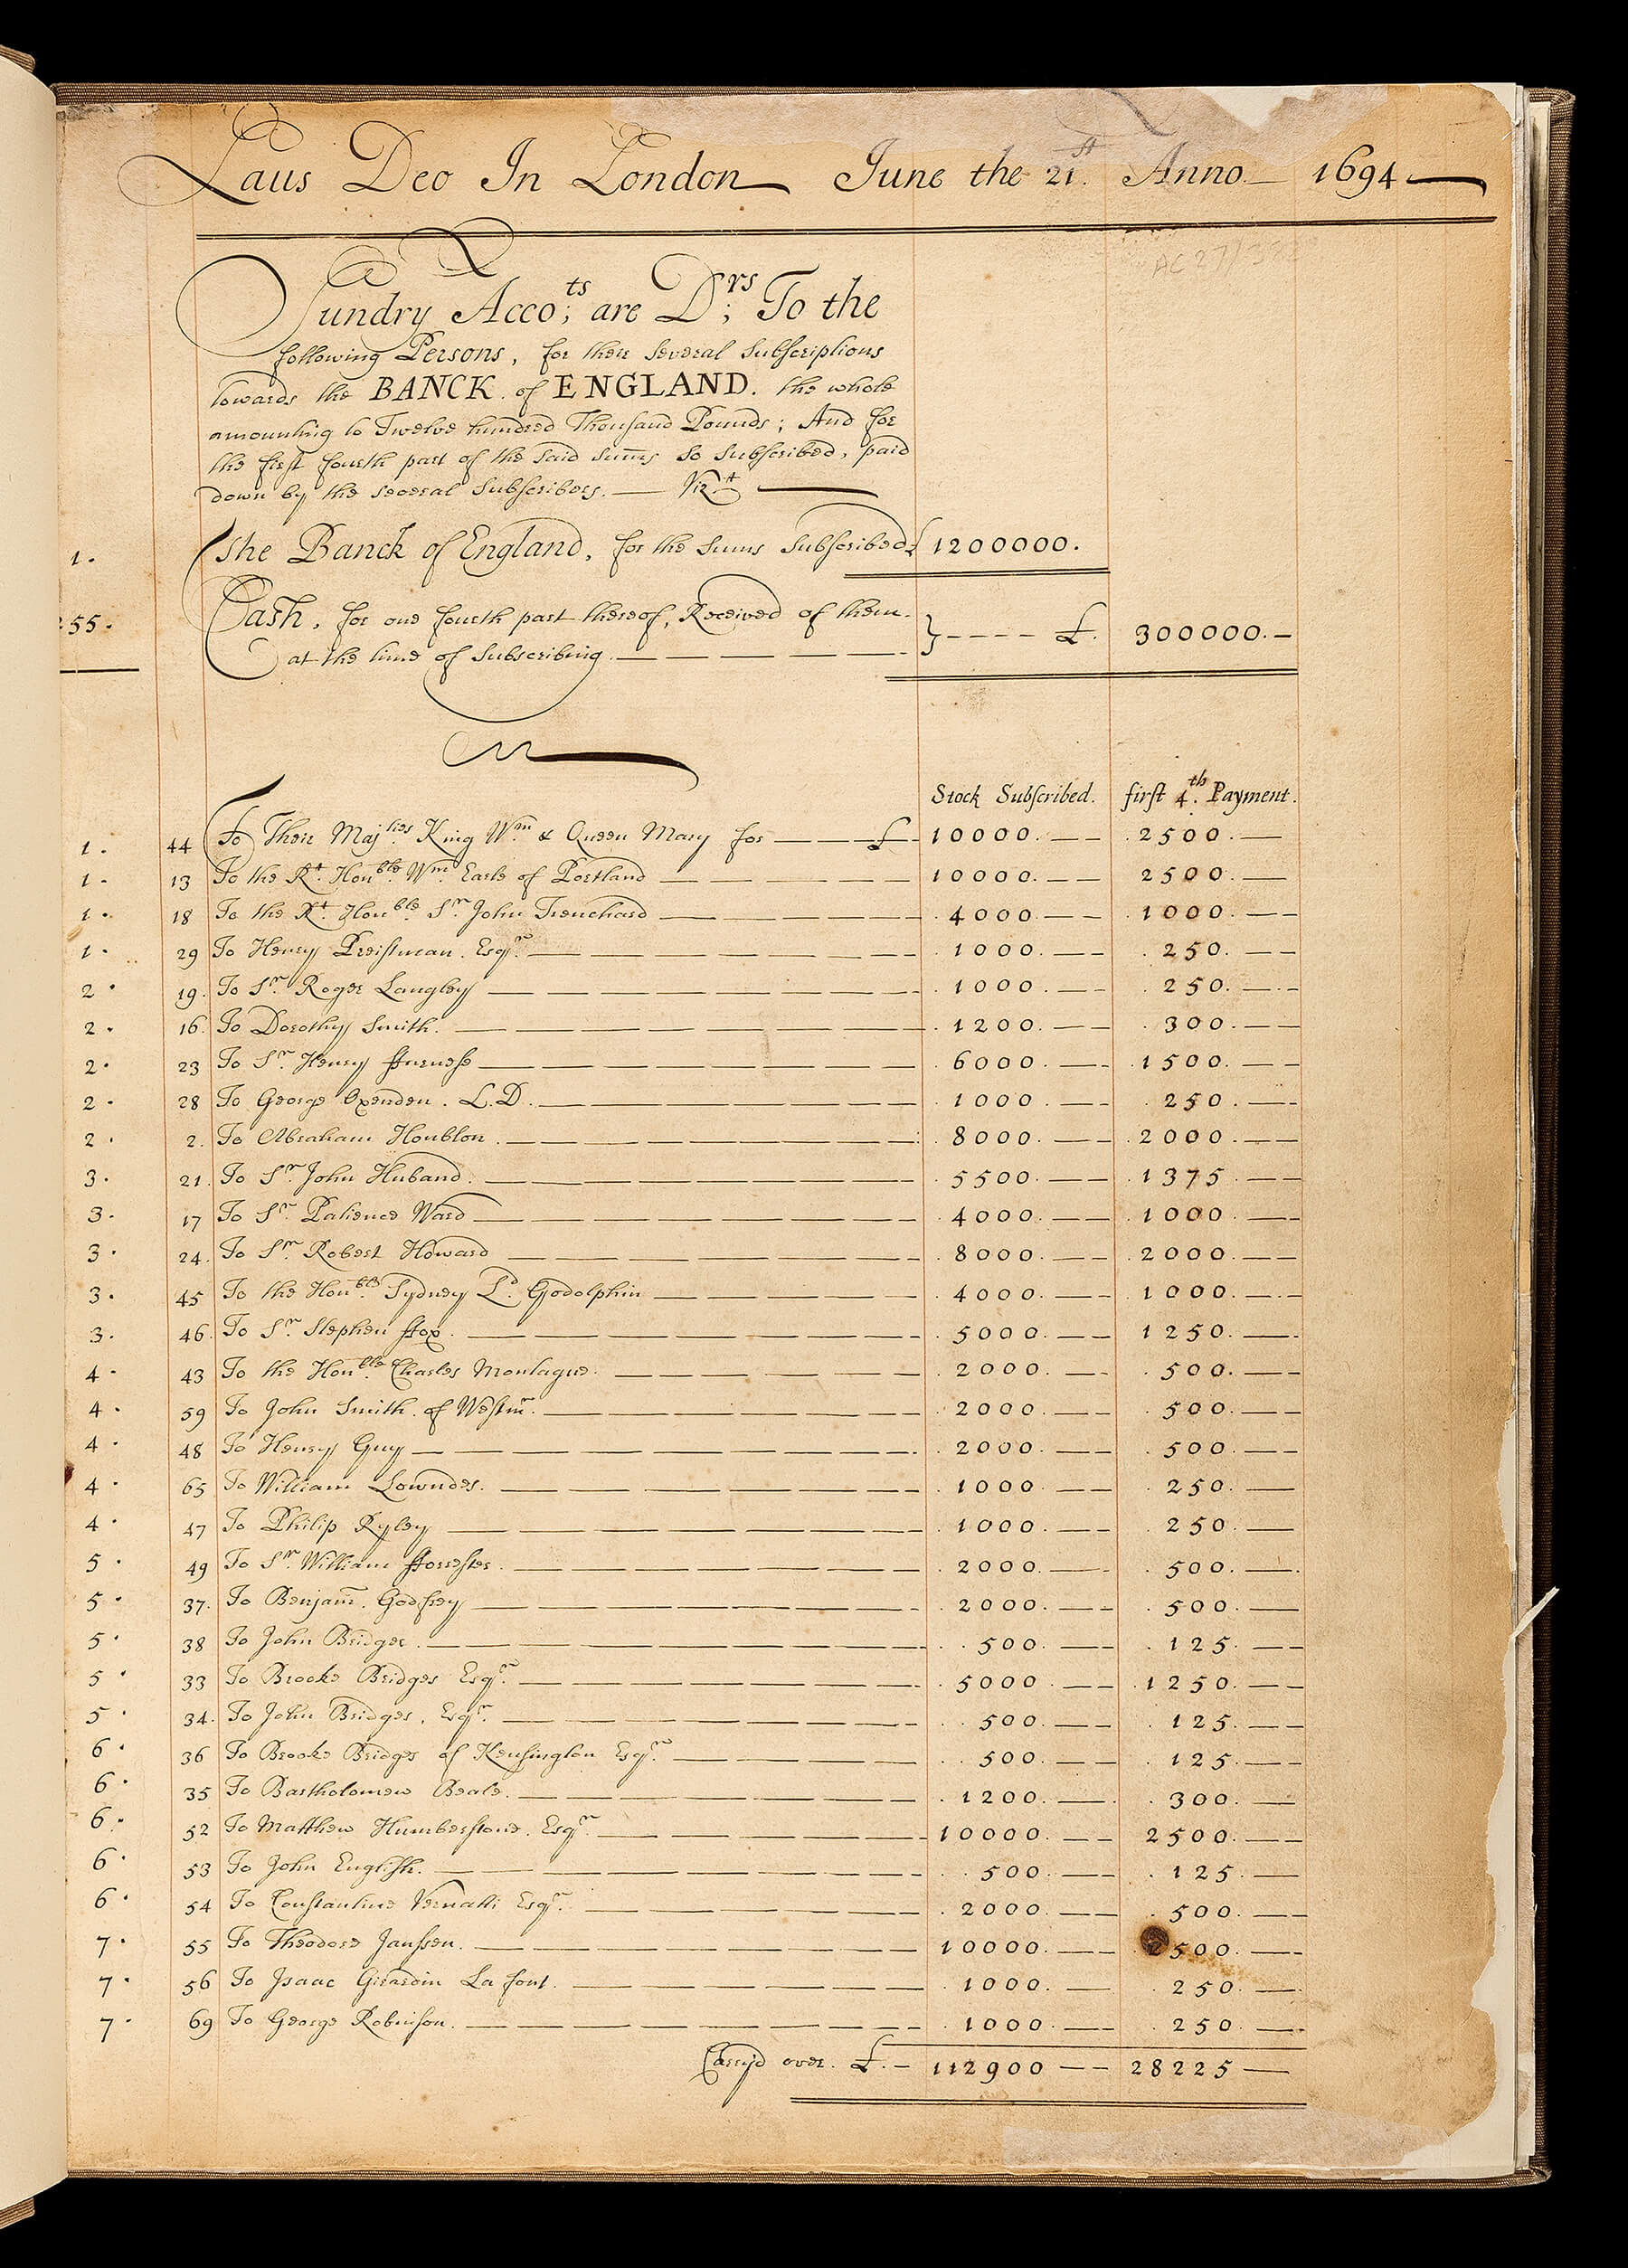 Laus Deo In London June the 21st. Anno 1694
AC 27/38
Sundry Acco;ts are D;rs To the
following Persons, for their several Subscriptions
towards the BANCK of ENGLAND. the whole
amounting to Twelve hundred Thousand Pounds; And for
the first fourth part of the said Sums so Subscribed, paid
down by the several Subscribers. Vizt
1. The Banck of England, for the Sums Subscribed £ 1200000.
255. Cash, for one fourth part thereof, Received of them
at the time of Subscribing. £. 300000.
Stock Subscribed. first 4th. Payment.
1. 44 To Their Majties. King Wm. & Queen Mary for £ 10000. 2500.
1. 13 To the Rt. Honble. Wm. Earle of Portland 10000. 2500.
1. 18 To the Rt. Honble Sr. John Trenchard 4000. 1000.
1. 29 To Henry Preistman. Esqr. 1000. 250.
2. 19. To Sr. Roger Langley 1000. 250.
2. 16. To Dorothy Smith. 1200. 300.
2. 23 To Sr. Henry ffurnese 6000. 1500.
2. 28 To George Oxenden. L.D. 1000. 250.
2. 2. To Abraham Houblon. 8000. 2000.
3. 21. To Sr. John Huband. 5500. 1375.
3. 17 To Sr. Patience Ward 4000. 1000.
3. 24. To Sr. Robert Howard 8000. 2000.
3. 45 To the Honble. Sydney Ld. Godolphin 4000. 1000.
3. 46. To Sr. Stephen ffox. 5000. 1250.
4. 43 To the Honble. Charles Montague. 2000. 500.
4. 59 To John Smith. of Westmr. 2000. 500.
4. 48 To Henry Guy 2000. 500.
4. 65 To William Lowndes. 1000. 250.
4. 47 To Philip Ryley 1000. 250.
5. 49 To Sr. William fforester. 2000. 500.
5. 37. To Benjam. Godfrey 2000. 500.
5. 38 To John Bridger. 500. 125.
5. 33 To Brooke Bridges Esqr. 5000. 1250.
5. 34. To John Bridges, Esqr. 500. 125.
6. 36 To Brooke Bridges of Kensington Esqr. 500. 125.
6. 35 To Bartholomew Beale. 1200. 300.
6. 52 To Matthew Humberstone. Esqr. 10000. 2500.
6. 53 To John English. 500. 125.
6. 54 To Constantine Vernatti Esqr. 2000. 500.
7. 55 To Theodore Janssen. 10000. 2500.
7. 56 To Isaac Girardin La font. 1000. 250.
7. 69 To George Robinson. 1000. 250.
Carry'd over. £. 112900 28225